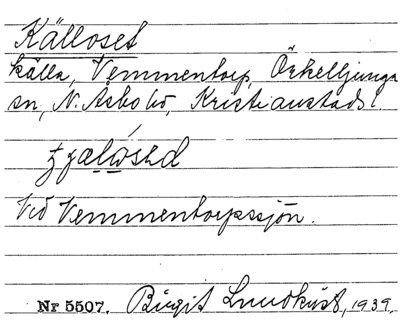 Källoset
källa, Vemmentorp, Örkelljunga
sn, N. Åsbo hd, Kristianstads l.
Vid Vemmentorpssjön.
Nr 5507. Birgit Lundkvist, 1939.